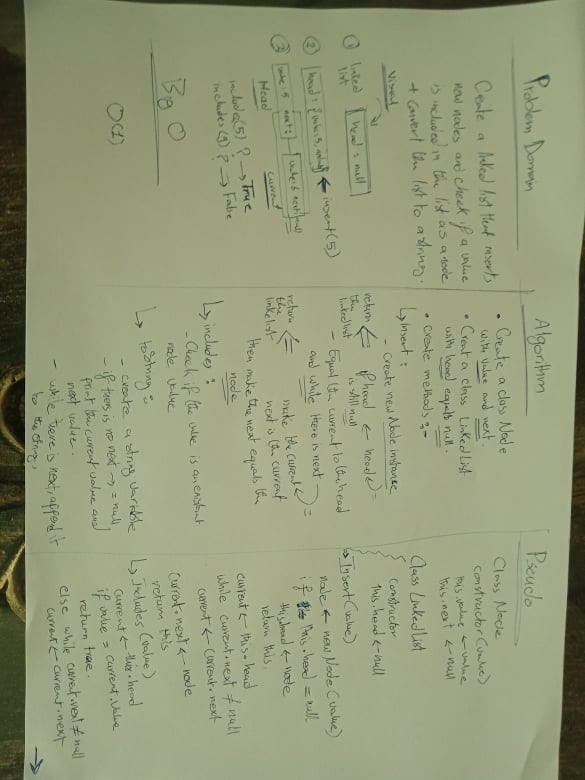 Problem Domain
Create a linked list that inserts
new nodes and check if a value
is included in the list as a node
+ convert the list to a string.
Visual
① linked list
head = null
② head = {value: 5, null} ← insert(5)
③ value: 5 next: value: 6 next: null
Head
current
includes(5) ? → True
includes(9) ? → False
Big O
O(1)
Algorithm
• Create a class Node
with value and next.
• Creat a class Linked list
with head equals null.
• Create methods :-
↳ Insert :
- Create new Node instance
return the linked list ⇐ if head ← head =
is still null
- Equal the current to the head
and while there is next
make the current =
next is the current
return the linke list ⇐
then make the next equals the
node
↳ includes :
- Check if the value is an existant
node value
↳ toString :
- create a string variable
- if there is no next → = null
print the current value and
next value.
- while there is next, append it
to the string.
Pseudo
Class Node
constructor (value)
this.value ← value
this.next ← null
Class Linked list
constructor
this.head ← null
↳ Insert (value)
node ← new Node (value)
if this.head = null
this.head ← node
return this.
current ← this.head
while current.next ≠ null
current ← current.next
current.next ← node
return this
↳ Includes (value)
current ← this.head
if value = current.value
return true.
else while current.next ≠ null
current ← current.next